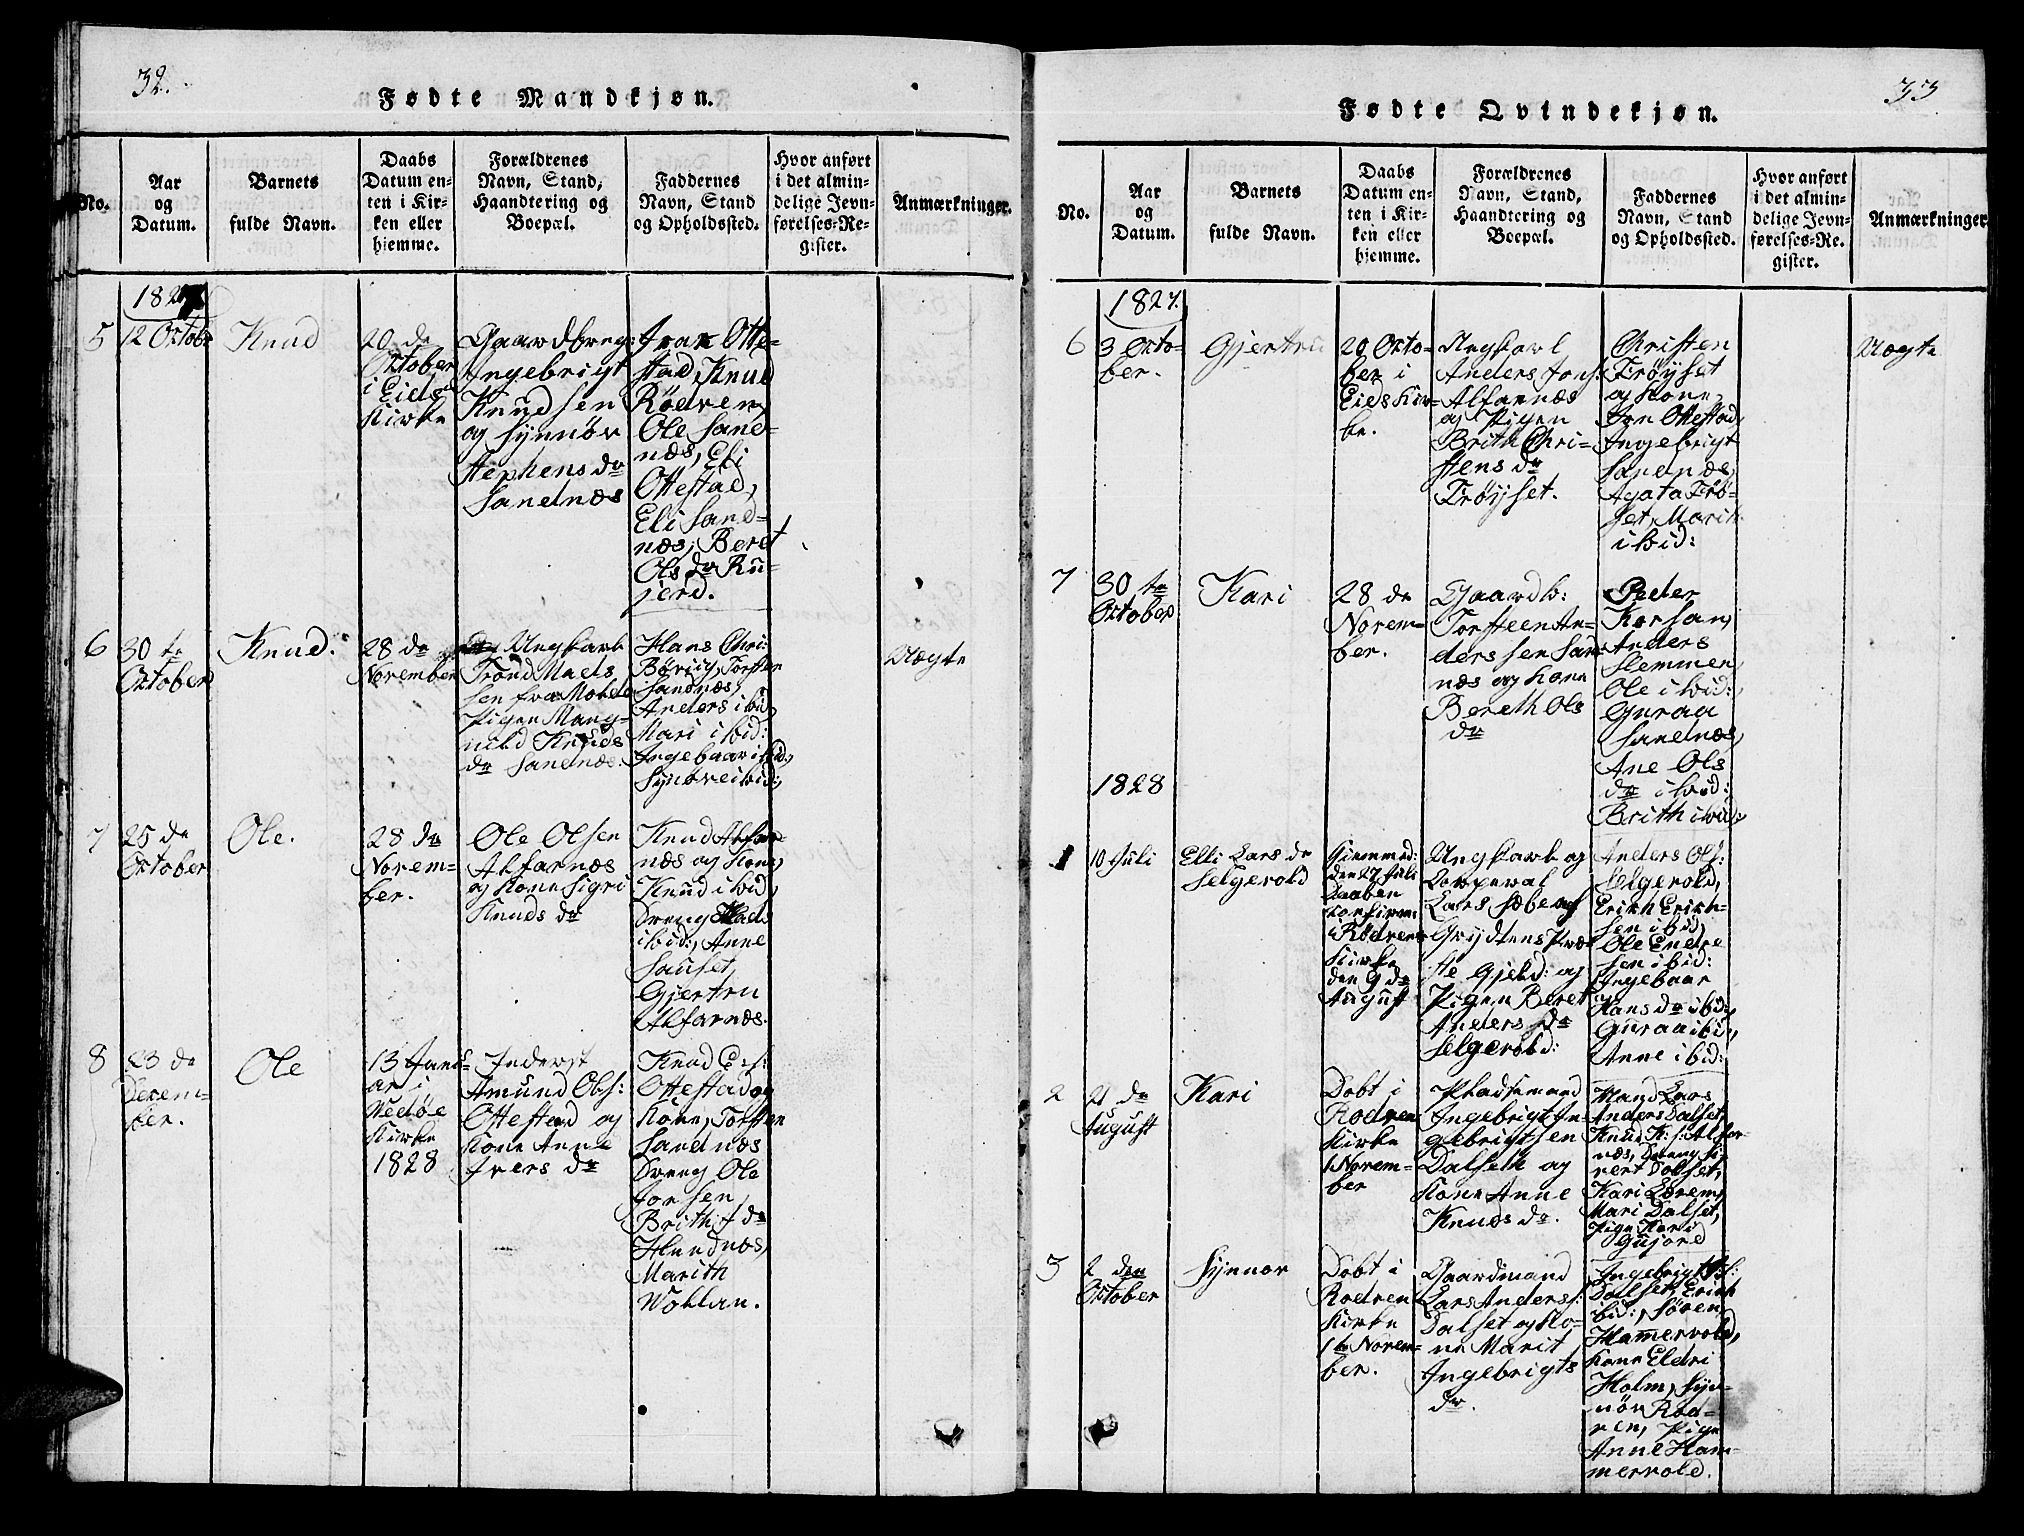 32.
Fødte Mandkjøn.
No.
Aar
og
Datum.
Barnets
fulde Navn.
Daabs
Datum en-
ten i Kir-
ken eller
hjemme.
Forældrenes
Navn, Stand,
Haandtering og
Boepæl.
Faddernes
Navn, Stand
og Opholdssted.
Hvor anført
i det almin-
delige Jevn-
førelses-Re-
gister.
Anmærkninger.
1827
5
12 Octobr
Knud
20 de
October
i Eids
Kirke
Gaardbrug:
Ingebrigt
Knudsen
og Synnøv
Stephens dr
Sandnæs
Ivar Otte-
stad, Knud
Rödven,
Ole Sand-
næs, Eli
Ottestad,
Eli Sand-
næs, Beret
Ols dr Ru-
jerd.
6
30 te
October
Knud.
28 de
November
Ungkarl
Trond Mads
sen fra Molde
Pigen Mang-
nild Knuds
dr Sandnæs.
Hans Chri:
Børsig, Torsten
Sandnæs,
Anders ibid,
Mari ibid:
Ingebaar ibid,
Synøve ibid:,
Uægte
7
25 de
October
Ole.
28 de
Novem-
ber.
Ole Olsen
Alfarnæs
og Kone Sigri
Knuds dr
Knud Alfar-
næs og Kone,
Knud ibid,
Dreng Mads
ibid:, Anne
Sauset,
Gjertru
Alfarnæs.
8
23 de
Decem-
ber.
Ole
13 Janu-
ar i
Vedöe
Kirke
1828
Inderst
Amund Ols:
Ottestad og
Kone Anne
Ivers dr
Knud E:s:
Ottestad og
Kone, Torsten
Sandnæs
Dreng Ole
Jonsen,
Brith J dr
Hundnæs,
Marith
Wollan.
33
Fødte Qvindekjøn.
No.
Aar
og
Datum.
Barnets
fulde Navn.
Daabs
Datum en-
ten i Kir-
ken eller
hjemme.
Forældrenes
Navn, Stand,
Haandtering og
Boepæl.
Faddernes
Navn, Stand
og Opholdssted.
Hvor anført
i det almin-
delige Jevn-
førelses-Re-
gister.
Anmærkninger
1827.
6
3 Octo-
ber.
Gjertru
20 Octo-
ber i
Eids Kir-
ke.
Ungkarl
Anders Jons:
Alfarnæs
og Pigen
Brith Chri-
stens dr
Frøyset.
Christen
Frøyset
og Kone,
Jon Ottestad,
Ingebrigt
Sandnæs,
Agata Frø-
set, Marith
ibid:
Uægte
7
30 te
October
Kari
28 de
Novem-
ber.
Gaardb:
Torsteen An-
ders sen Sand-
næs og Kone
Bereth Ols
dr
Peder
Korsan,
Anders
Slemmen,
Ole ibid:,
Guraa
Sandnæs,
Ane Ols
dr ibid:
Brith ibid:
1828
1
10 Juli
Elli Lars dr
Selgevold
Hiemmed:
den 27 Juli
Daaben
confirm:
i Rödvens
Kirke
den 9 de
August
Ungkarl og
Corporal
Lars Sæbe af
Grydtens Præ-
ste Gjeld: og
Pigen Beret
Anders dr
Selgevold:
Anders Ols:
Selgevold,
Erich Erich-
sen ibid,
Ole Endre
sen ibid:
Ingebaar
Hans dr ibid:,
Guraa ibid,
Anne ibid:
2
21 de
August
Kari
Döbt i
Rödven
Kirke
1 Novem-
ber
Pladsemand
Ingebrigt In-
gebrigtsen
Dalseth og
Kone Anne
Knuds dr.
Mand Lars
Anders Dalset,
Knud K:s: Alfar-
næs, Dreng Si-
vert Dalset,
Kari Lerem,
Mari Dalset,
Pige Kari
Gujord
3
2 den
October
Synnør
Döbt i
Rödven
Kirke
1te Novem-
ber.
Gaardmand
Lars Anders:
Dalset og Ko-
ne Marit
Ingebrigts
dr.
Ingebrigt I:s:
Dalset, Erich
bid:, Sören
Hammervold,
Kone Eldri
Holm, Syn-
növ Röd-
ven, Pige
Anne Ham-
mervold.